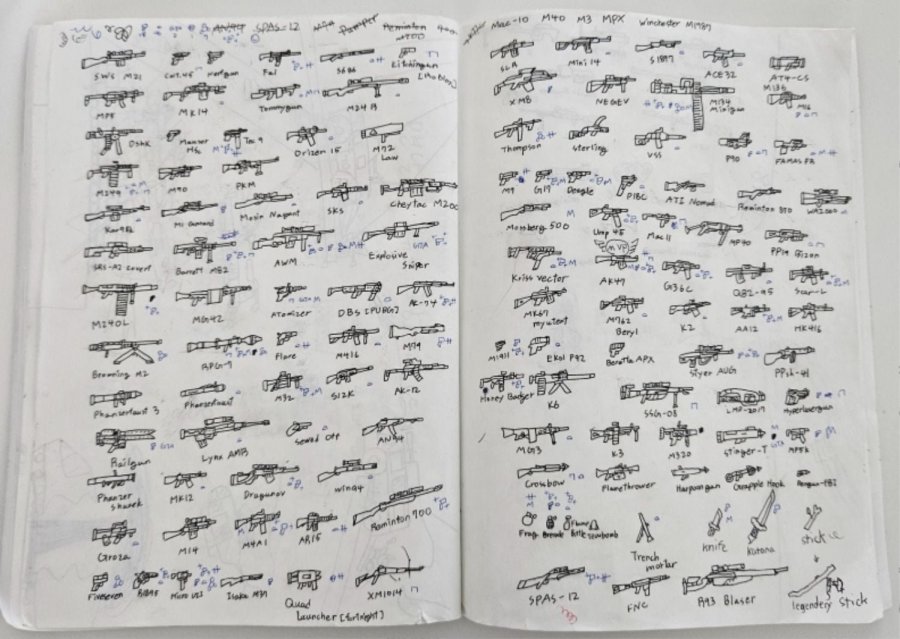 SPAS-12
SWS M21
Colt.45
Fal
S686
Kitchingun
MP5
MK14
Tommygun
M24 B
Dshk
Mauser HSc
Tec 9
M72 Law
M249
M90
PKM
Kar98k
Mosin Nagant
SKS
Cheytac M200
Barrett M82
AWM
Explosive Sniper
M240L
MG42
Atomizer
DBS [PUBG]
AK-74
Browning M2
RPG-7
Flare
M416
M79
Phanzerfaust 3
Phanzerfaust
M32
S12K
AK-12
Railgun
Lynx AMR
Sewed Off
AN94
Phanzer shreek
MK12
Dragunov
Win94
Groza
M14
M4A1
AR15
Reminton 700
Fiveseven
Micro UZI
Isaka M37
Quad Launcher [fortnight]
XM1014
Mac-10 M40 M3 MPX Winchester M1987
SLR
Mini 14
S1897
ACE32
AT4-CS M136
XM8
NEGEV
M134 Minigun
M16
Thompson
Sterling
VSS
P90
FAMAS FR
M9
G17
Deagle
P18C
ATI Nomad
Reminton 870
WA2000
Mossberg 500
Ump 45
Mac11
MP40
PP19 Bizon
MVP
Kriss Vector
AK47
G36C
QBZ-95
Scar-L
MK47 mutent
M762 Beryl
K2
AA12
HK416
M1911
Ekol P92
Beretta APX
Styer AUG
PPsh-41
Honey Badger
K6
SSG-08
LMP-2017
Hyperlasergun
MG3
K3
M320
Stinger-T
MP5K
Crossbow
Flamethrower
Harpoongun
Grapple Hook
Frag
Trench mortar
knife
katana
stick
SPAS-12
FNC
R93 Blaser
legendery Stick